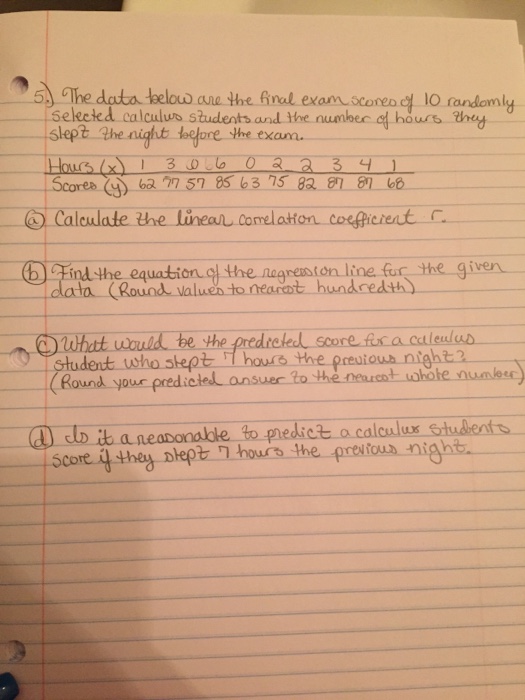 5.) The data below are the final exam scores of 10 randomly
selected calculus students and the number of hours they
slept the night before the exam.
Hours (x) 1 3 0 6 0 2 2 3 4 1
Scores (y) 62 77 57 85 63 75 82 87 87 68
(a) Calculate the linear correlation coefficient r.
(b) Find the equation of the regression line for the given
data (Round values to nearest hundredth)
(c) What would be the predicted score for a calculus
student who slept 7 hours the previous night?
(Round your predicted answer to the nearest whole number)
(d) Is it a reasonable to predict a calculus students
score if they slept 7 hours the previous night.